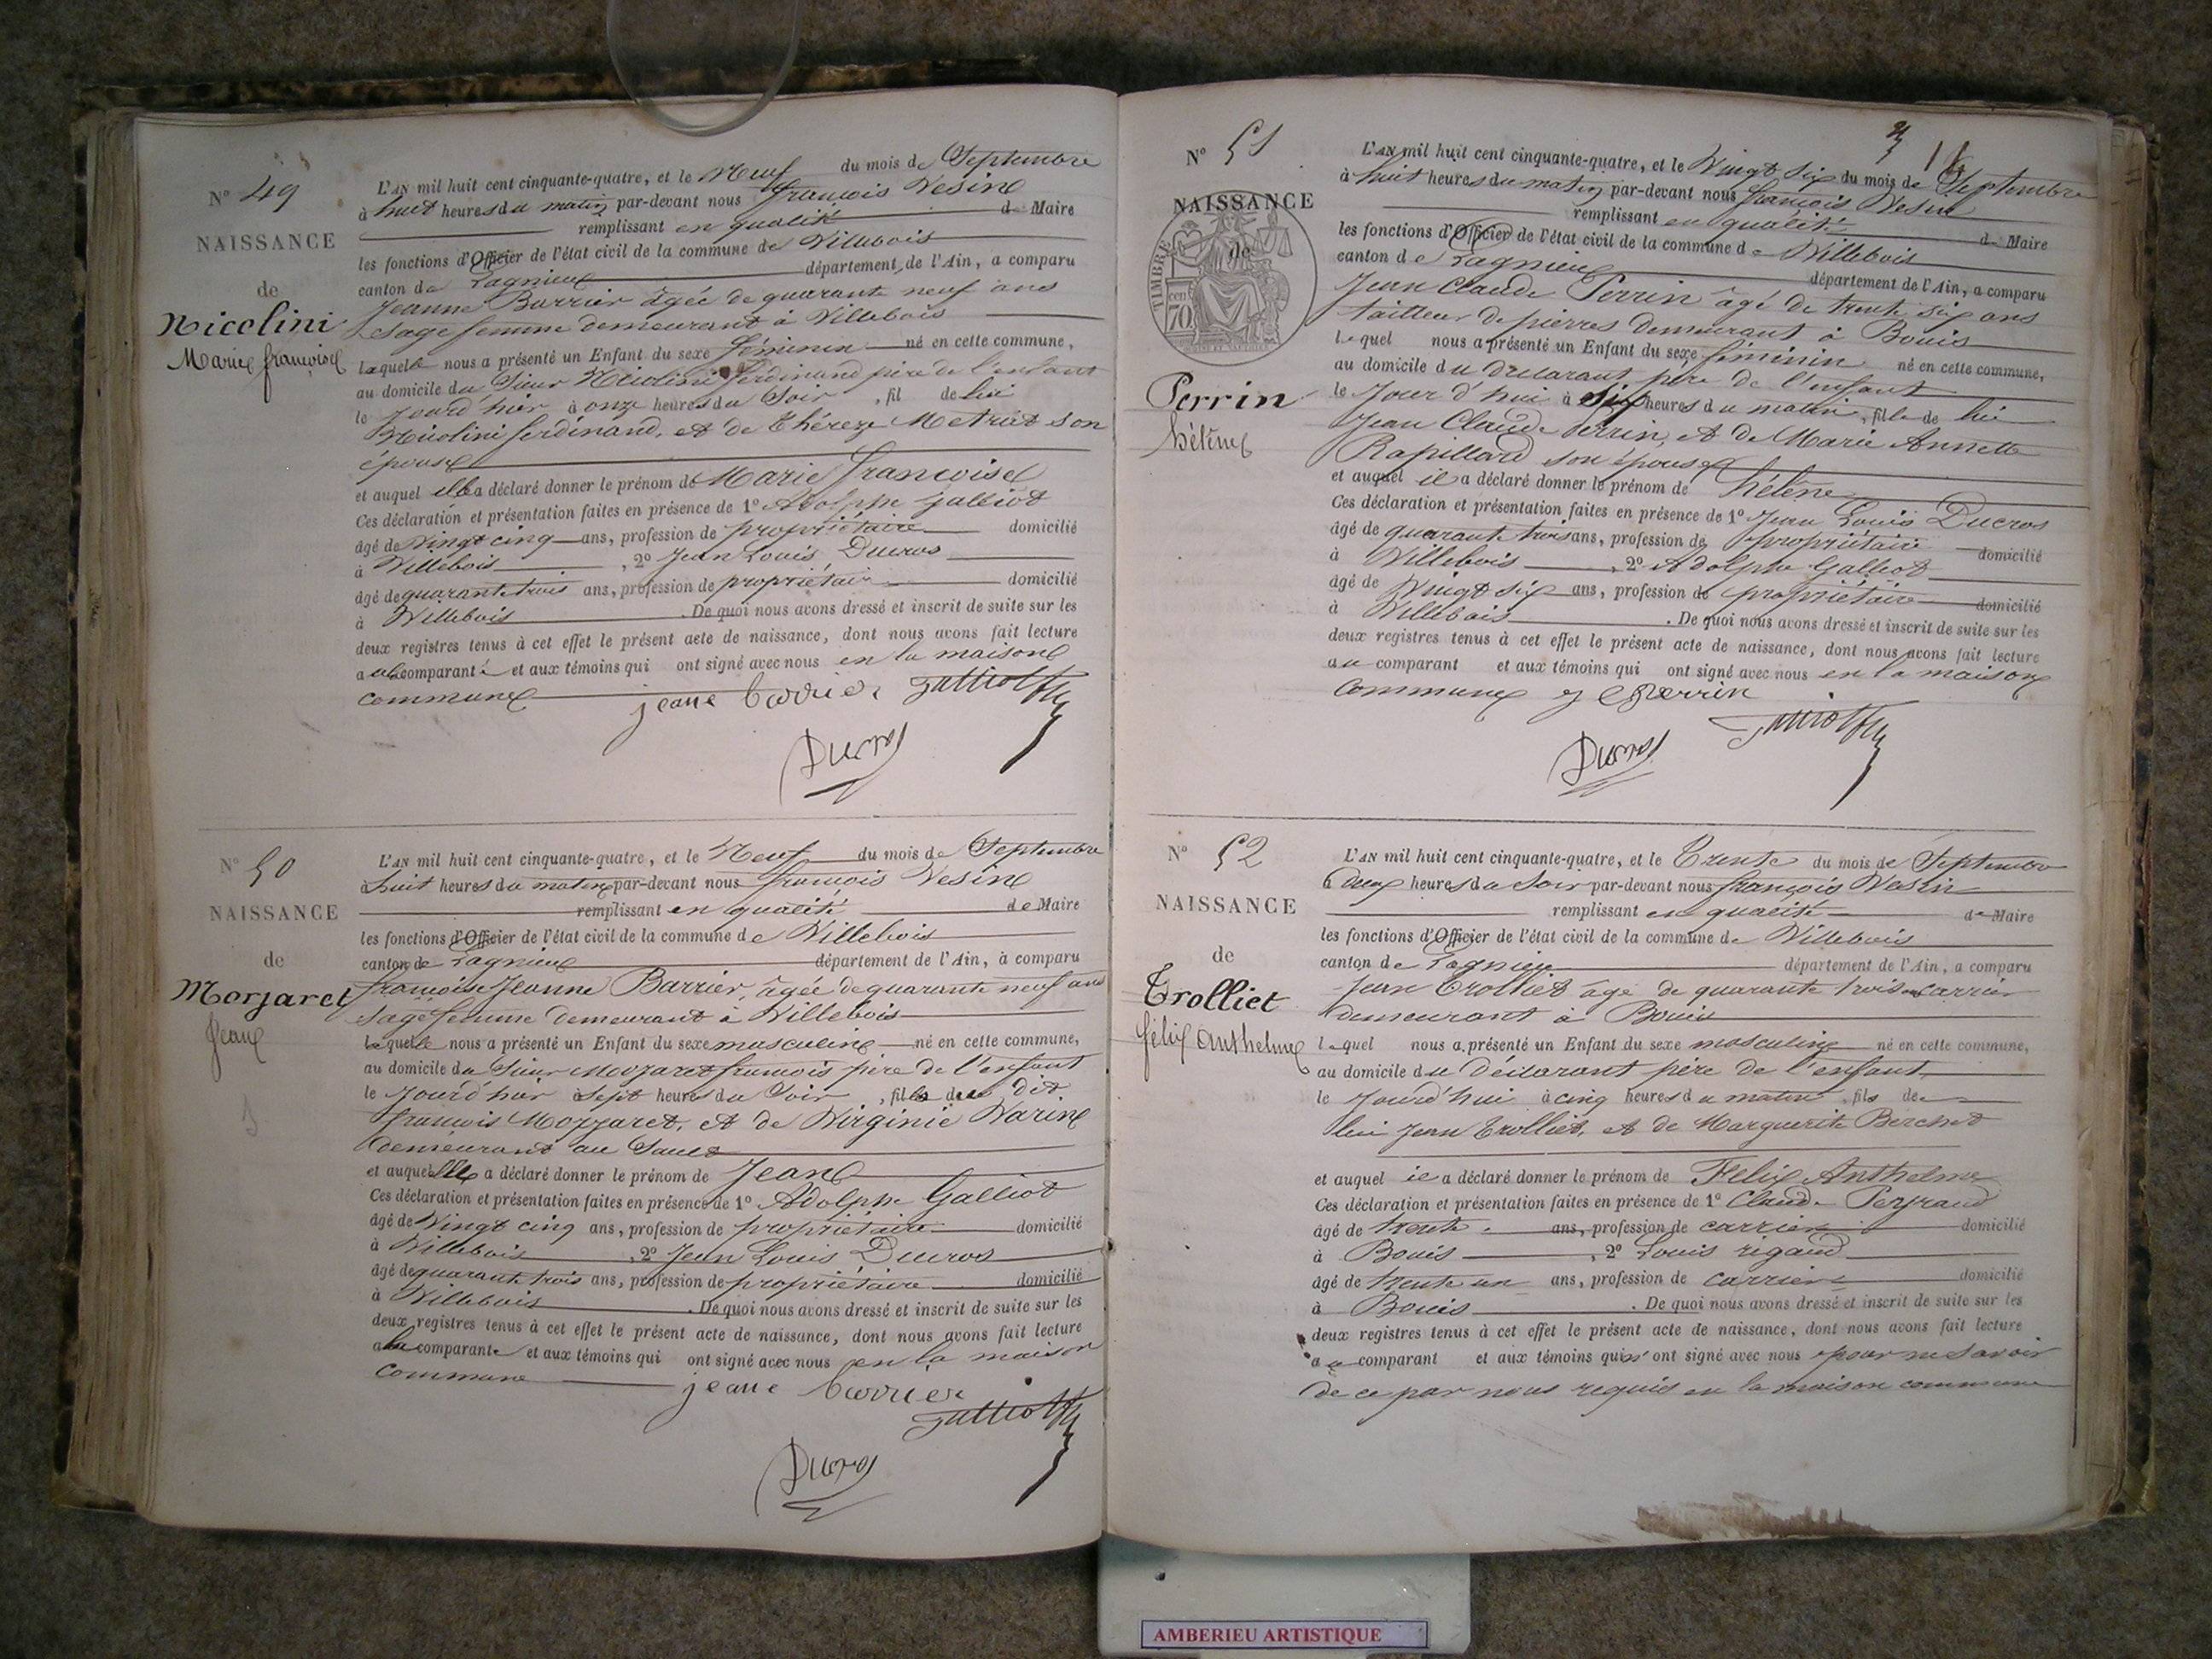 N° 49
NAISSANCE
de
Nicolini
Marie françoise
L'AN mil huit cent cinquante-quatre, et le Neuf du mois de Septembre
à huit heures du matin par-devant nous françois Vesin
remplissant en qualité de Maire
les fonctions d'Officier de l'état civil de la commune de Villebois
canton de Lagnieu département de l'Ain, a comparu
Jeanne Barrier âgée de quarante neuf ans
Sage femme demeurant à Villebois
laquelle nous a présenté un Enfant du sexe féminin né en cette commune,
au domicile du Sieur Nicolini ferdinand père de l'enfant
le Jourd'hier à onze heures du Soir, fil de lui
Nicolini ferdinand, et de Théreze Metriet son
épouse
et auquel elle a déclaré donner le prénom de Marie françoise
Ces déclaration et présentation faites en présence de 1° Adolphe Galliot
âgé de Vingt cinq ans, profession de propriétaire domicilié
à Villebois, 2° Jean Louis Ducros
âgé de quarante trois ans, profession de propriétaire domicilié
à Villebois. De quoi nous avons dressé et inscrit de suite sur les
deux registres tenus à cet effet le présent acte de naissance, dont nous avons fait lecture
a la comparante et aux témoins qui ont signé avec nous en la maison
commune jeane barrier Galliot
Ducros
N° 50
NAISSANCE
de
Morzaret
Jean
L'AN mil huit cent cinquante-quatre, et le Neuf du mois de Septembre
à huit heures du matin par-devant nous françois Vesin
remplissant en qualité de Maire
les fonctions d'Officier de l'état civil de la commune de Villebois
canton de Lagnieu département de l'Ain, à comparu
françoise Jeanne Barrier, âgée de quarante neuf ans
Sage femme demeurant à Villebois
laquelle nous a présenté un Enfant du sexe masculin né en cette commune,
au domicile du Sieur Mozaret françois père de l'enfant
le Jourd'hier à Sept heures du Soir, fils du dit
françois Mozzaret, et de Virginie Varin
demeurant au Sault
et auquel elle a déclaré donner le prénom de Jean
Ces déclaration et présentation faites en présence de 1° Adolphe Galliot
âgé de Vingt cinq ans, profession de propriétaire domicilié
à Villebois, 2° Jean Louis Ducros
âgé de quarante trois ans, profession de propriétaire domicilié
à Villebois. De quoi nous avons dressé et inscrit de suite sur les
deux registres tenus à cet effet le présent acte de naissance, dont nous avons fait lecture
a la comparante et aux témoins qui ont signé avec nous en la maison
commune jeane barrier
Galliot
Ducros
N° 51
NAISSANCE
de
TIMBRE
70 cen
Perrin
hélène
L'AN mil huit cent cinquante-quatre, et le Vingt Six du mois de Septembre
à huit heures du matin par-devant nous françois Vesin
remplissant en qualité de Maire
les fonctions d'Officier de l'état civil de la commune de Villebois
canton de Lagnieu département de l'Ain, a comparu
Jean Claude Perrin âgé de trente six ans
tailleur de pierres demeurant à Bouis
lequel nous a présenté un Enfant du sexe féminin né en cette commune,
au domicile du déclarant père de l'enfant
le Jour d'hui à Six heures du matin, fille de lui
Jean Claude Perrin, et de Marie Annette
Rapillard son épouse
et auquel il a déclaré donner le prénom de hélène
Ces déclaration et présentation faites en présence de 1° Jean Louis Ducros
âgé de quarante trois ans, profession de propriétaire domicilié
à Villebois, 2° Adolphe Galliot
âgé de Vingt six ans, profession de propriétaire domicilié
à Villebois. De quoi nous avons dressé et inscrit de suite sur les
deux registres tenus à cet effet le présent acte de naissance, dont nous avons fait lecture
au comparant et aux témoins qui ont signé avec nous en la maison
commune perrin
Galliot
Ducros
N° 52
NAISSANCE
de
Trolliet
félix Anthelme
L'AN mil huit cent cinquante-quatre, et le Trente du mois de Septembre
à deux heures du Soir par-devant nous françois Vesin
remplissant en qualité de Maire
les fonctions d'Officier de l'état civil de la commune de Villebois
canton de Lagnieu département de l'Ain, a comparu
Jean Trolliet âgé de quarante trois ans carrier
demeurant à Bouis
lequel nous a présenté un Enfant du sexe masculin né en cette commune,
au domicile du déclarant père de l'enfant
le Jourd'hui à cinq heures du matin, fils de
lui Jean Trolliet, et de Marguerite Berchet
et auquel il a déclaré donner le prénom de Félix Anthelme
Ces déclaration et présentation faites en présence de 1° Claude Peyraud
âgé de trente ans, profession de carrier domicilié
à Bouis, 2° Louis rigaud
âgé de trente un ans, profession de carrier domicilié
à Bouis. De quoi nous avons dressé et inscrit de suite sur les
deux registres tenus à cet effet le présent acte de naissance, dont nous avons fait lecture
au comparant et aux témoins qui n'ont signé avec nous pour ne savoir
de ce par nous requis en la maison commune
AMBERIEU ARTISTIQUE